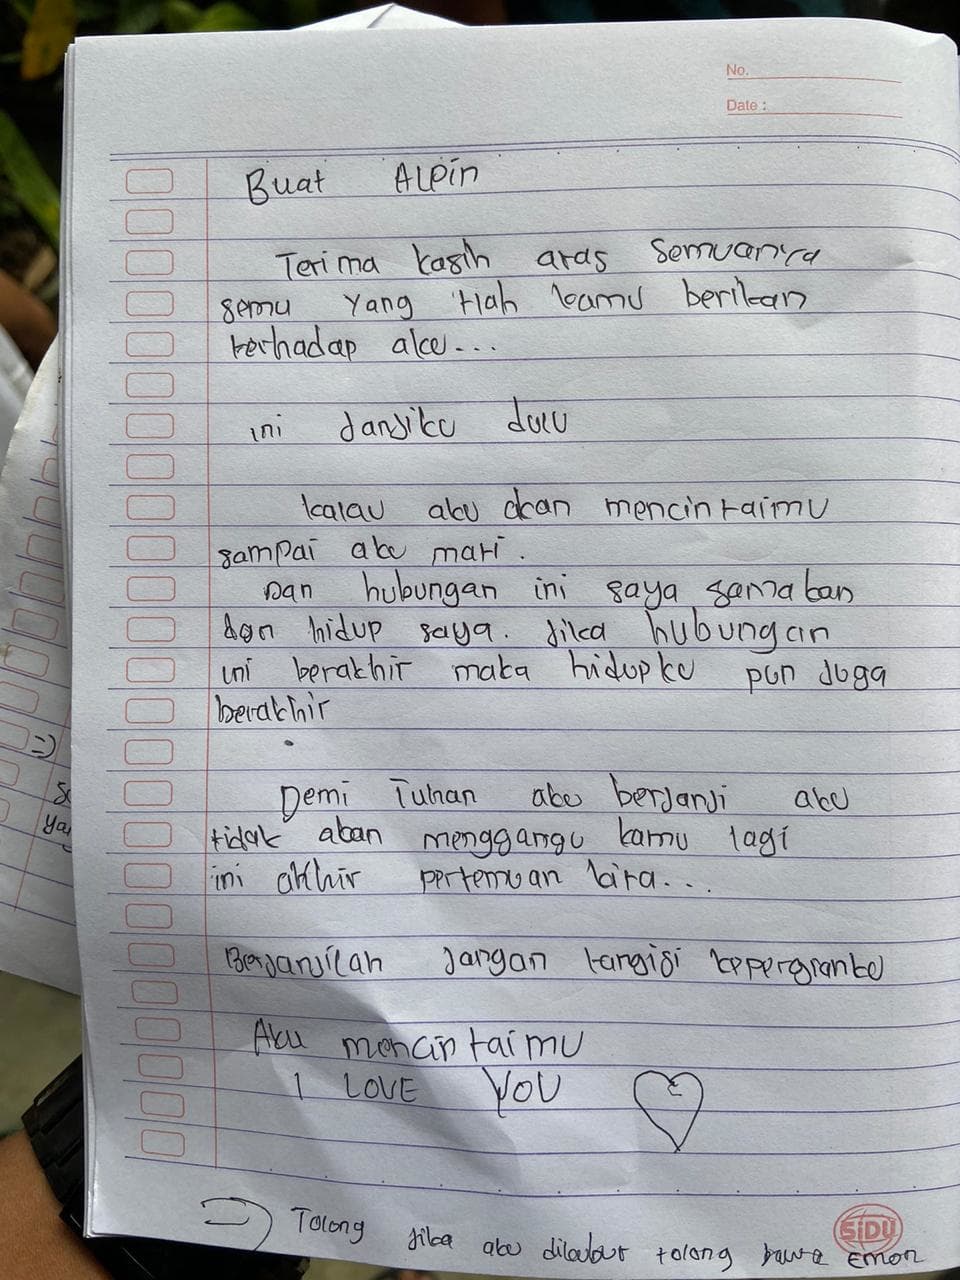 No.
Date :
Buat Alpin
Terima kasih atas semuanya
semu yang tlah kamu berikan
terhadap aku...
ini Janjiku dulu
kalau aku akan mencintaimu
sampai aku mati.
Dan hubungan ini saya samakan
dgn hidup saya. Jika hubungan
ini berakhir maka hidupku pun Juga
berakhir
Demi Tuhan aku berJanJi aku
tidak akan menggangu kamu lagi
ini akhir pertemuan kita...
BerJanJilah Jangan tangisi kepergianku
Aku mencintaimu
I LOVE YOU
Tolong Jika aku dikubur tolong bawa Emon
SiDU
=)
yan